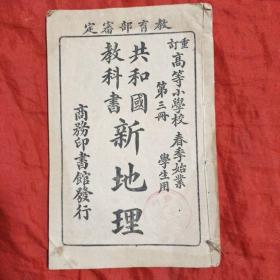 定審部育教
重訂
高等小學校
春季始業
學生用
第三冊
共和國
教科書
新地理
商務印書館發行